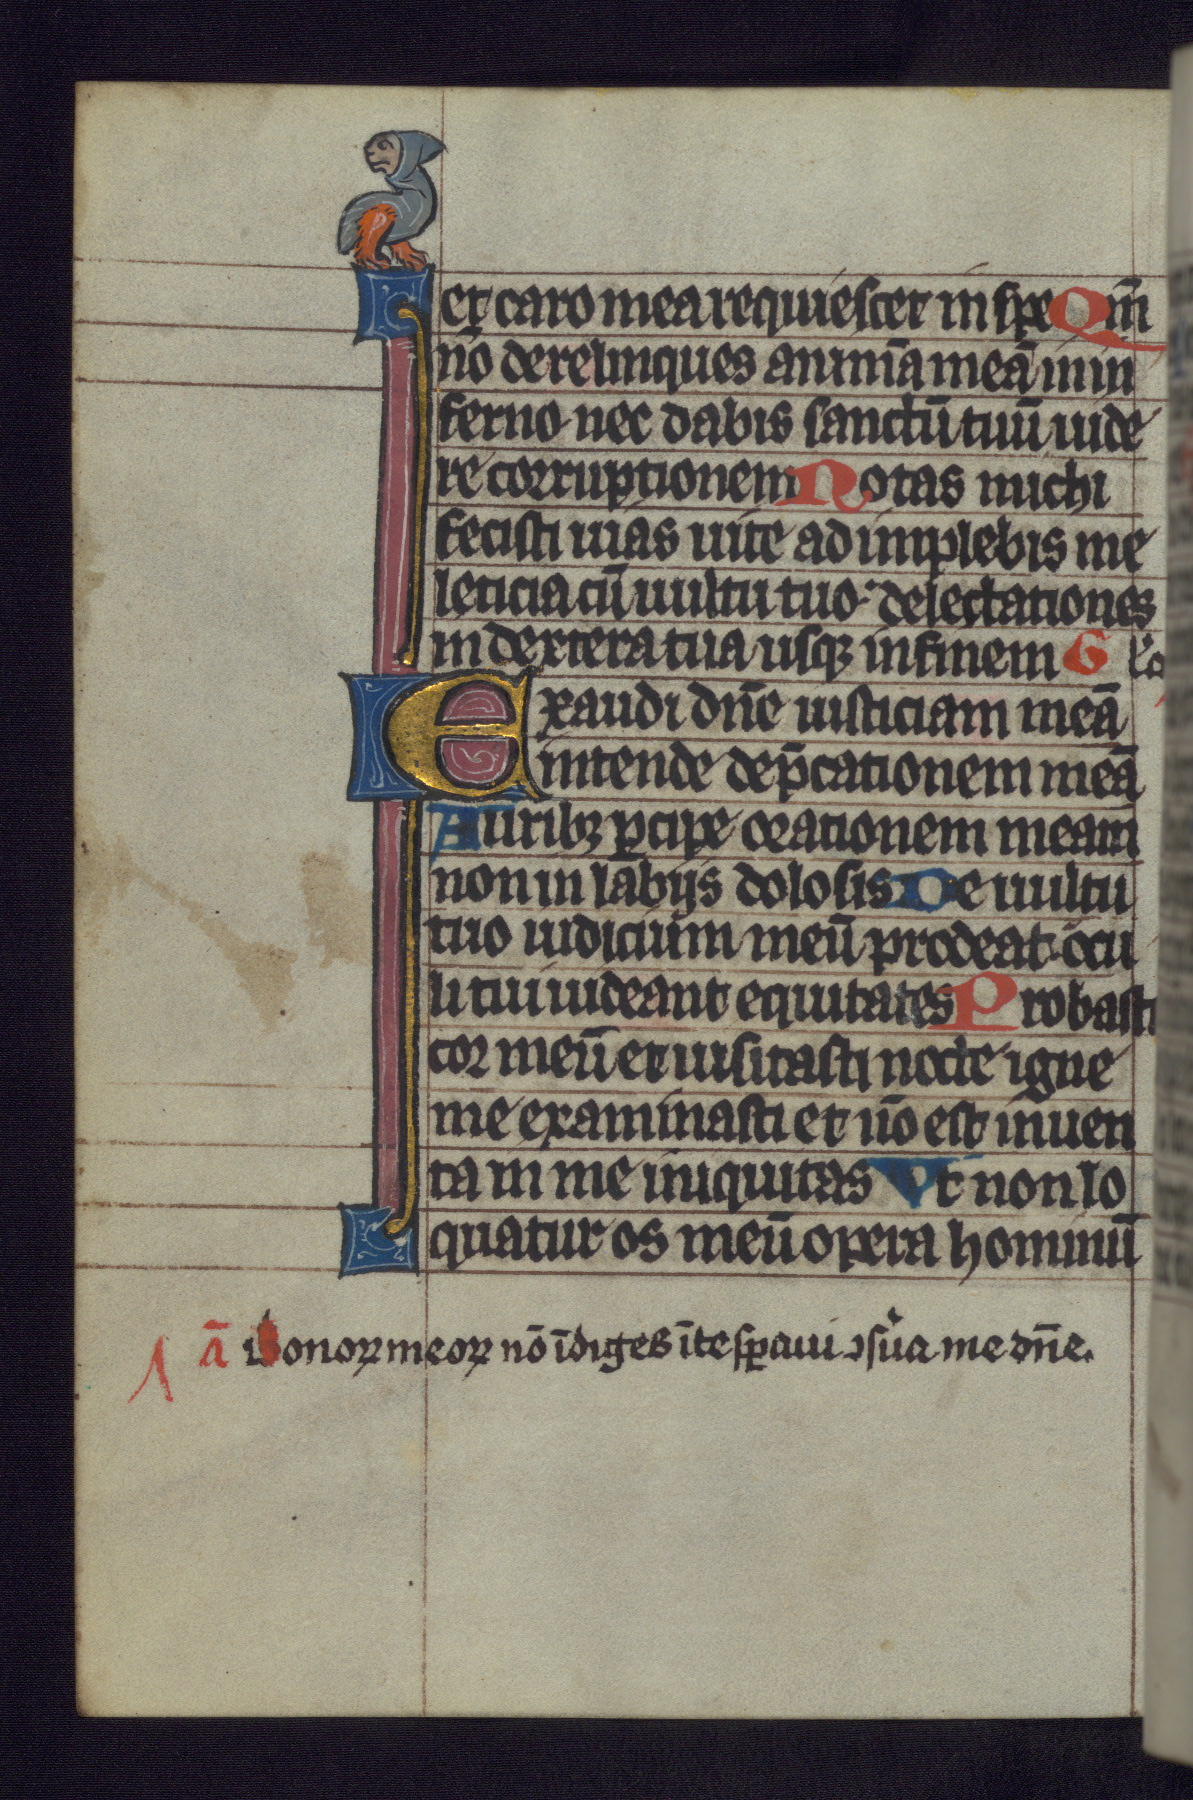 et caro mea requiescet in spe Qm̄
nō derelinques animā meā in in
ferno nec dabis sanctū tuū uide
re corruptionem Notas michi
fecisti uias uite ad implebis me
leticia cū uultu tuo delectationes
in dextera tua usqꝫ in finem Glo
Exaudi dn̄e iusticiam meā
intende dep̄cationem meā
Auribꝫ p̄cipe orationem meam
non in labijs dolosis De uultu
tuo iudicium meū prodeat ocu
li tui uideant equitates Probasti
cor meū et uisitasti nocte igne
me examinasti et nō est inuen
ta in me iniquitas Vt non lo
quatur os meū opera hominū
ā Bonoꝝ meoꝝ nō īdiges ī te sꝑaui ꝯsua me dn̄e.